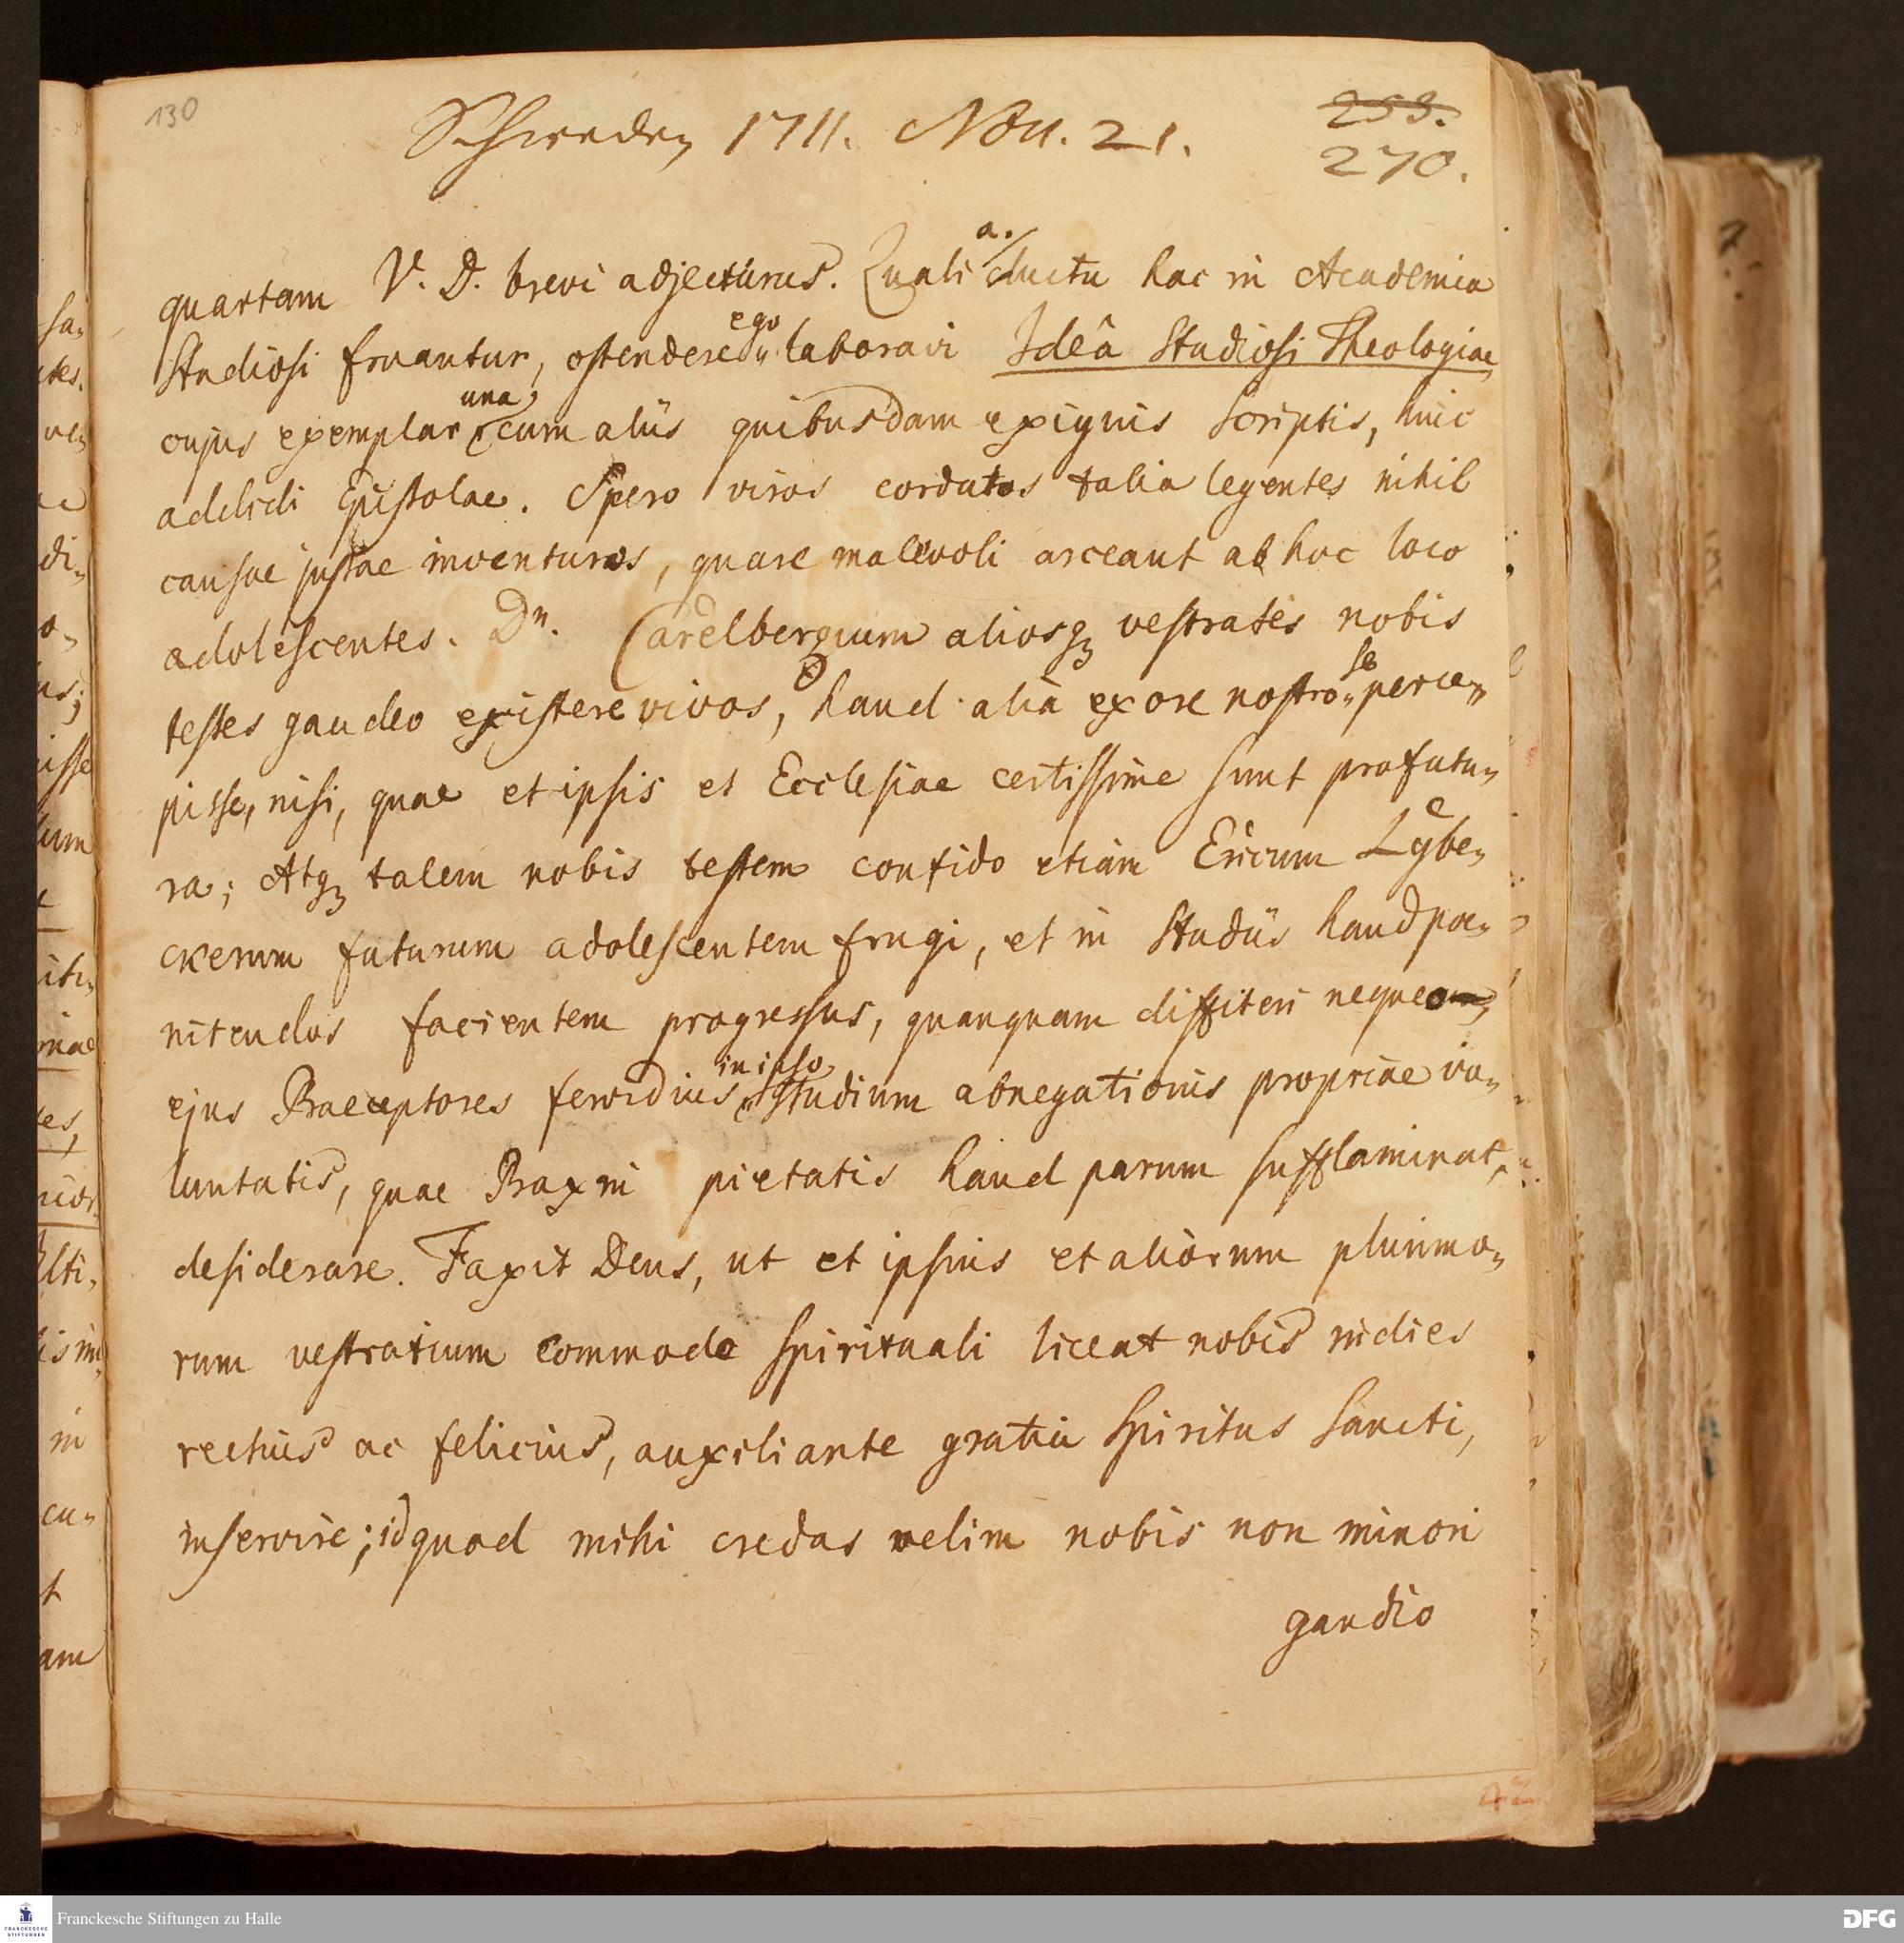 130
Schweden 1711. Nov. 21.
253.
270.
quartam V. D. brevi adjecturus. Quali a. ductu hac in Academia
Studiosi fruantur, ostendere ego laboravi Ideâ Studiosi Theologiae,
cujus exemplar una cum aliis quibusdam exiguis scriptis, huic
addidi Epistolae. Spero viros cordatos talia legentes nihil
causae justae inventuros, quare malevoli arceant ab hoc loco
adolescentes. Dn. Carelbergium aliosq vestrates nobis
testes gaudeo existere vivos, haud alia ex ore nostro se perce„
pisse, nisi, quae et ipsis et Ecclesiae certissime sunt profutu„
ra; Atq talem nobis testem confido etiam Ericum Lybe„
ckerum futurum adolescentem frugi, et in studiis haud poe„
nitendos facientem progressus, quanquam diffiteri nequeo
ejus Praeceptores fervidius in ipso studium abnegationis propriae vo„
luntatis, quae Praxin pietatis haud parum sufflaminat,
desiderare. Faxit Deus, ut et ipsius et aliorum plurimo„
rum vestratium commodo spirituali liceat nobis indies
rectius ac felicius, auxiliante gratia Spiritus Sancti,
inservire; id quod mihi credas velim nobis non minori
gaudio
Franckesche Stiftungen zu Halle
FRANCKESCHE STIFTUNGEN
DFG